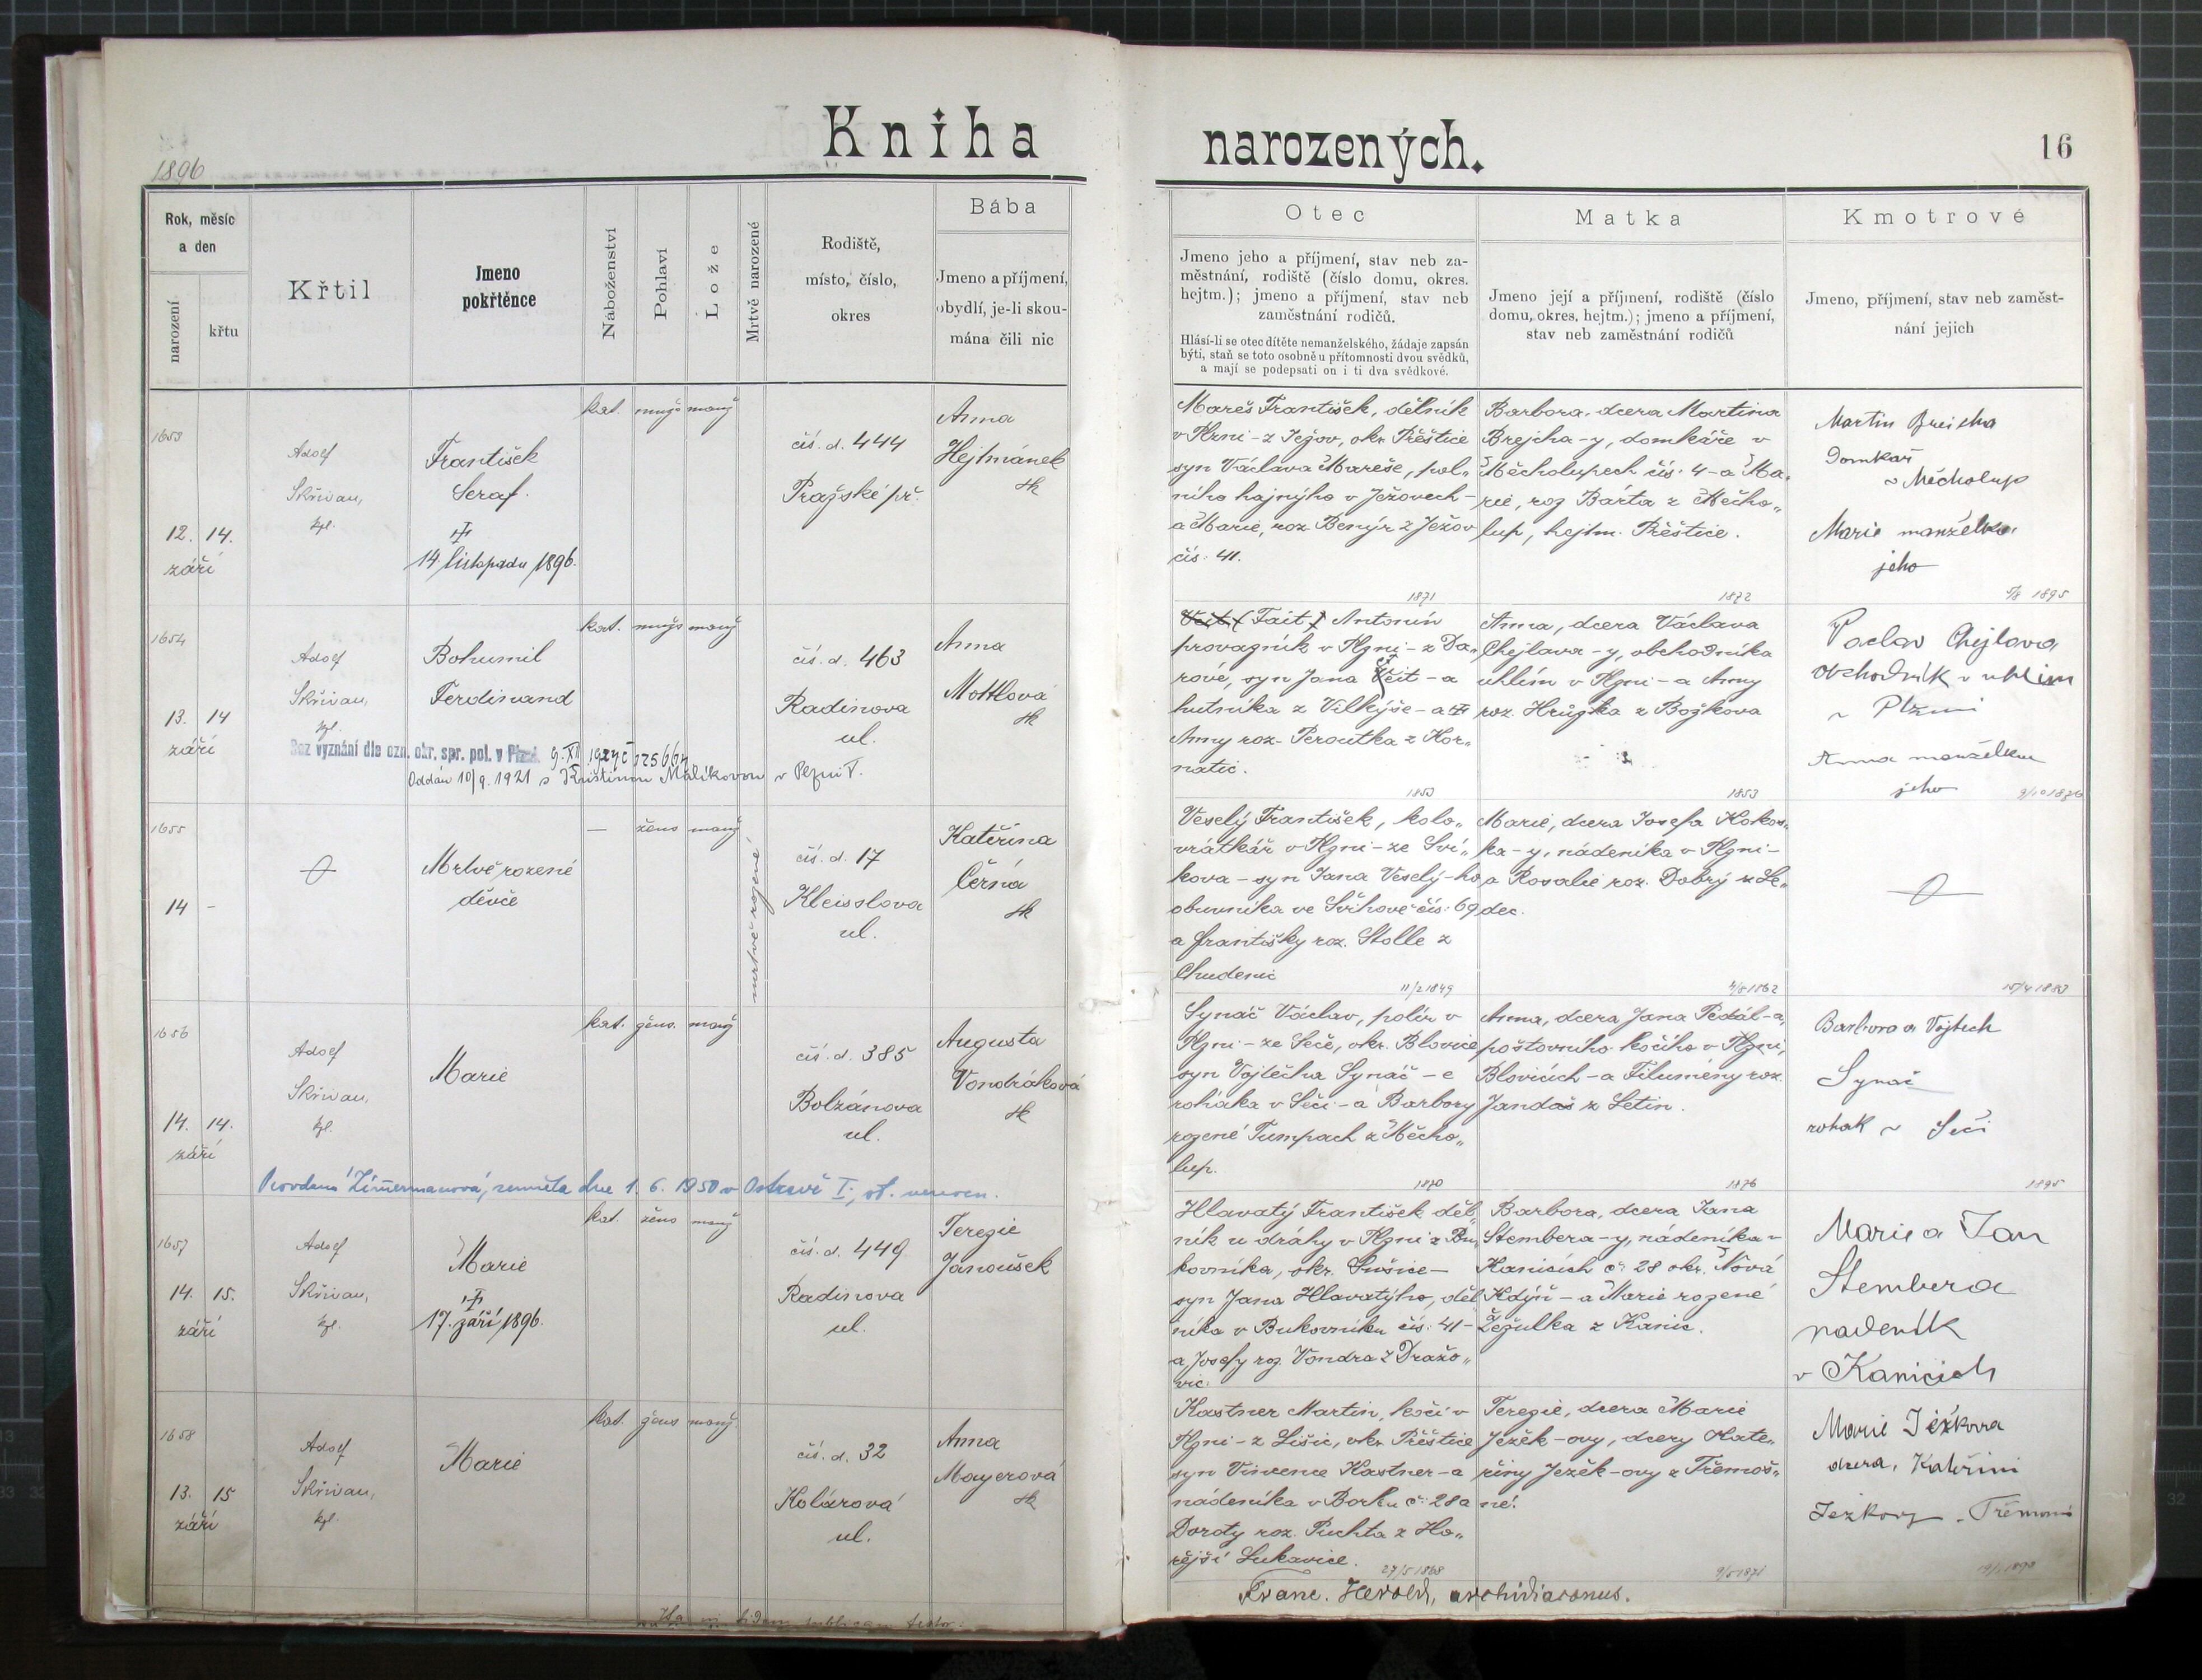 Kniha narozených.
16
1896
Rok, měsíc
a den
narození
křtu
Křtil
Jmeno
pokřtěnce
Náboženství
Pohlaví
Lože
Mrtvě narozené
Rodiště,
místo, číslo,
okres
Bába
Jmeno a příjmení,
obydlí, je-li skou-
mána čili nic
Otec
Jmeno jeho a příjmení, stav neb za-
městnání, rodiště (číslo domu, okres.
hejtm.); jmeno a příjmení, stav neb
zaměstnání rodičů.
Hlásí-li se otec dítěte nemanželského, žádaje zapsán
býti, staň se toto osobně u přítomnosti dvou svědků,
a mají se podepsati on i ti dva svědkové.
Matka
Jmeno její a příjmení, rodiště (číslo
domu, okres. hejtm.); jmeno a příjmení,
stav neb zaměstnání rodičů
Kmotrové
Jmeno, příjmení, stav neb zaměst-
nání jejich
1653
12. 14.
září
Adolf
Skřivan,
kpl.
František
Seraf.
14. listopadu 1896.
kat. mužs manž
čís. d. 444
Pražské př.
Anna
Hejtmánek
Mareš František, dělník
v Plzni - z Ježov, okr. Přeštice
syn Václava Mareše, pol„
ního hajného v Ježovech -
a Marie, roz. Benýr z Ježov
čís. 41.
1871
Barbora, dcera Martina
Brejcha-y, domkáře v
Měcholupech čís. 4 - a Ma„
rie, roz. Bárta z Měcho„
lup, hejtm. Přeštice.
1872
Martin Brejcha
Domkař
v Měcholup
Marie manželka
jeho
1895
1654
13. 14
září
Adolf
Skřivan,
kpl.
Bohumil
Ferdinand
kat. mužs manž
čís. d. 463
Radinova
ul.
Anna
Mottlová
Bez vyznání dle ozn. okr. spr. pol. v Plzni.
Oddán 10/9. 1921 s Kristinou Malíkovou v Plzni I.
Veit (Fait) Antonín
provazník v Plzni - z Da„
rové, syn Jana Veit - a
hutníka z Vilkýše - a
Anny roz. Peroutka z Kor„
natic.
1853
Anna, dcera Václava
Chejlava-y, obchodníka
uhlím v Plzni - a Anny
roz. Hrůzka z Božkova
1853
Vaclav Chejlava
obchodník v uhlim
v Plzni
Anna manželka
jeho
1655
14 -
Mrtvě rozené
děvče
— žens manž
mrtvě rozené
čís. d. 17
Kleisslova
ul.
Kateřina
Černá
Veselý František, kolo„
vrátkář v Plzni - ze Svi„
kova - syn Jana Veselý-ho
obuvníka ve Svihově čís. 69
a Františky roz. Stolle z
Chudenic
11/2 1849
Marie, dcera Josefa Kokos„
ka-y, nádeníka v Plzni -
a Rosalie roz. Dobrý z Le„
dec.
1862
15/4 1883
1656
14. 14.
září
Adolf
Skřivan,
kpl.
Marie
kat. žens. manž
čís. d. 385
Bolzánova
ul.
Augusta
Vondráková
Provdaná Zimermanová, zemřela dne 1. 6. 1950 v Ostravě I;
Synáč Václav, polír v
Plzni - ze Seče, okr. Blovice
syn Vojtěcha Synáč - e
roháka v Seči - a Barbory
rozené Tumpach z Měcho„
lup.
1870
Anna, dcera Jana Pedál-a,
poštovního kočího v Plzni,
Blovicích - a Filumény roz.
Jandoš z Letin.
1876
Barbora a Vojtěch
Synač
rohak v Seči
1895
1657
14. 15.
září
Adolf
Skřivan,
kpl.
Marie
17. září 1896.
kat. žens manž
čís. d. 449
Radinova
ul.
Terezie
Janoušek
Hlavatý František děl„
ník u dráhy v Plzni z Bu„
kovníka, okr. Sušice -
syn Jana Hlavatýho, děl„
níka v Bukovníku čís. 41 -
a Josefy roz. Vondra z Dražo„
vic.
Barbora, dcera Jana
Stembera-y, nádeníka v
Kanicích č. 28 okr. Nová
Kdýň - a Marie rozené
Žežulka z Kanic.
Marie a Jan
Stembera
nadeník
v Kanicich
1658
13. 15
září
Adolf
Skřivan,
kpl.
Marie
kat. žens manž.
čís. d. 32
Kolárová
ul.
Anna
Mayerová
Kastner Martin, kočí v
Plzni - z Lišic, okr. Přeštice
syn Vincence Kastner - a
nádeníka v Borku č. 28 a
Doroty roz. Puchta z Ho„
řejší Lukavice.
27/5 1868
Terezie, dcera Marie
Ježek-ovy, dcery Kate„
řiny Ježek-ovy z Třemoš„
né.
9/5 1871
Marie Ježkova
dcera, Kateřini
Ježkovy
Franc. Herold, archidiaconus.